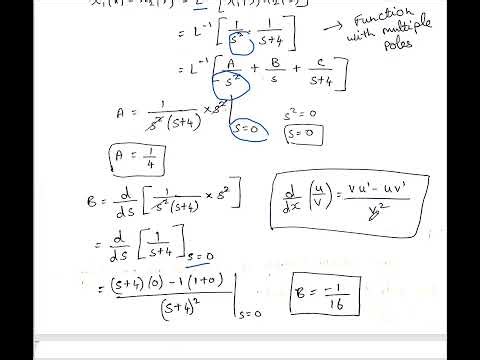 x₁(t) * x₂(t) = L⁻¹ [X₁(s) X₂(s)]
= L⁻¹ [ 1/s² · 1/s+4 ] → Function with multiple poles
= L⁻¹ [ A/s² + B/s + C/s+4 ]
A = 1/s²(s+4) × s² | s=0
s² = 0
s = 0
A = 1/4
B = d/ds [ 1/s²(s+4) × s² ]
d/dx (u/v) = vu' - uv' / v²
= d/ds [ 1/s+4 ] s=0
= (s+4)(0) - 1(1+0) / (s+4)² | s=0
B = -1/16